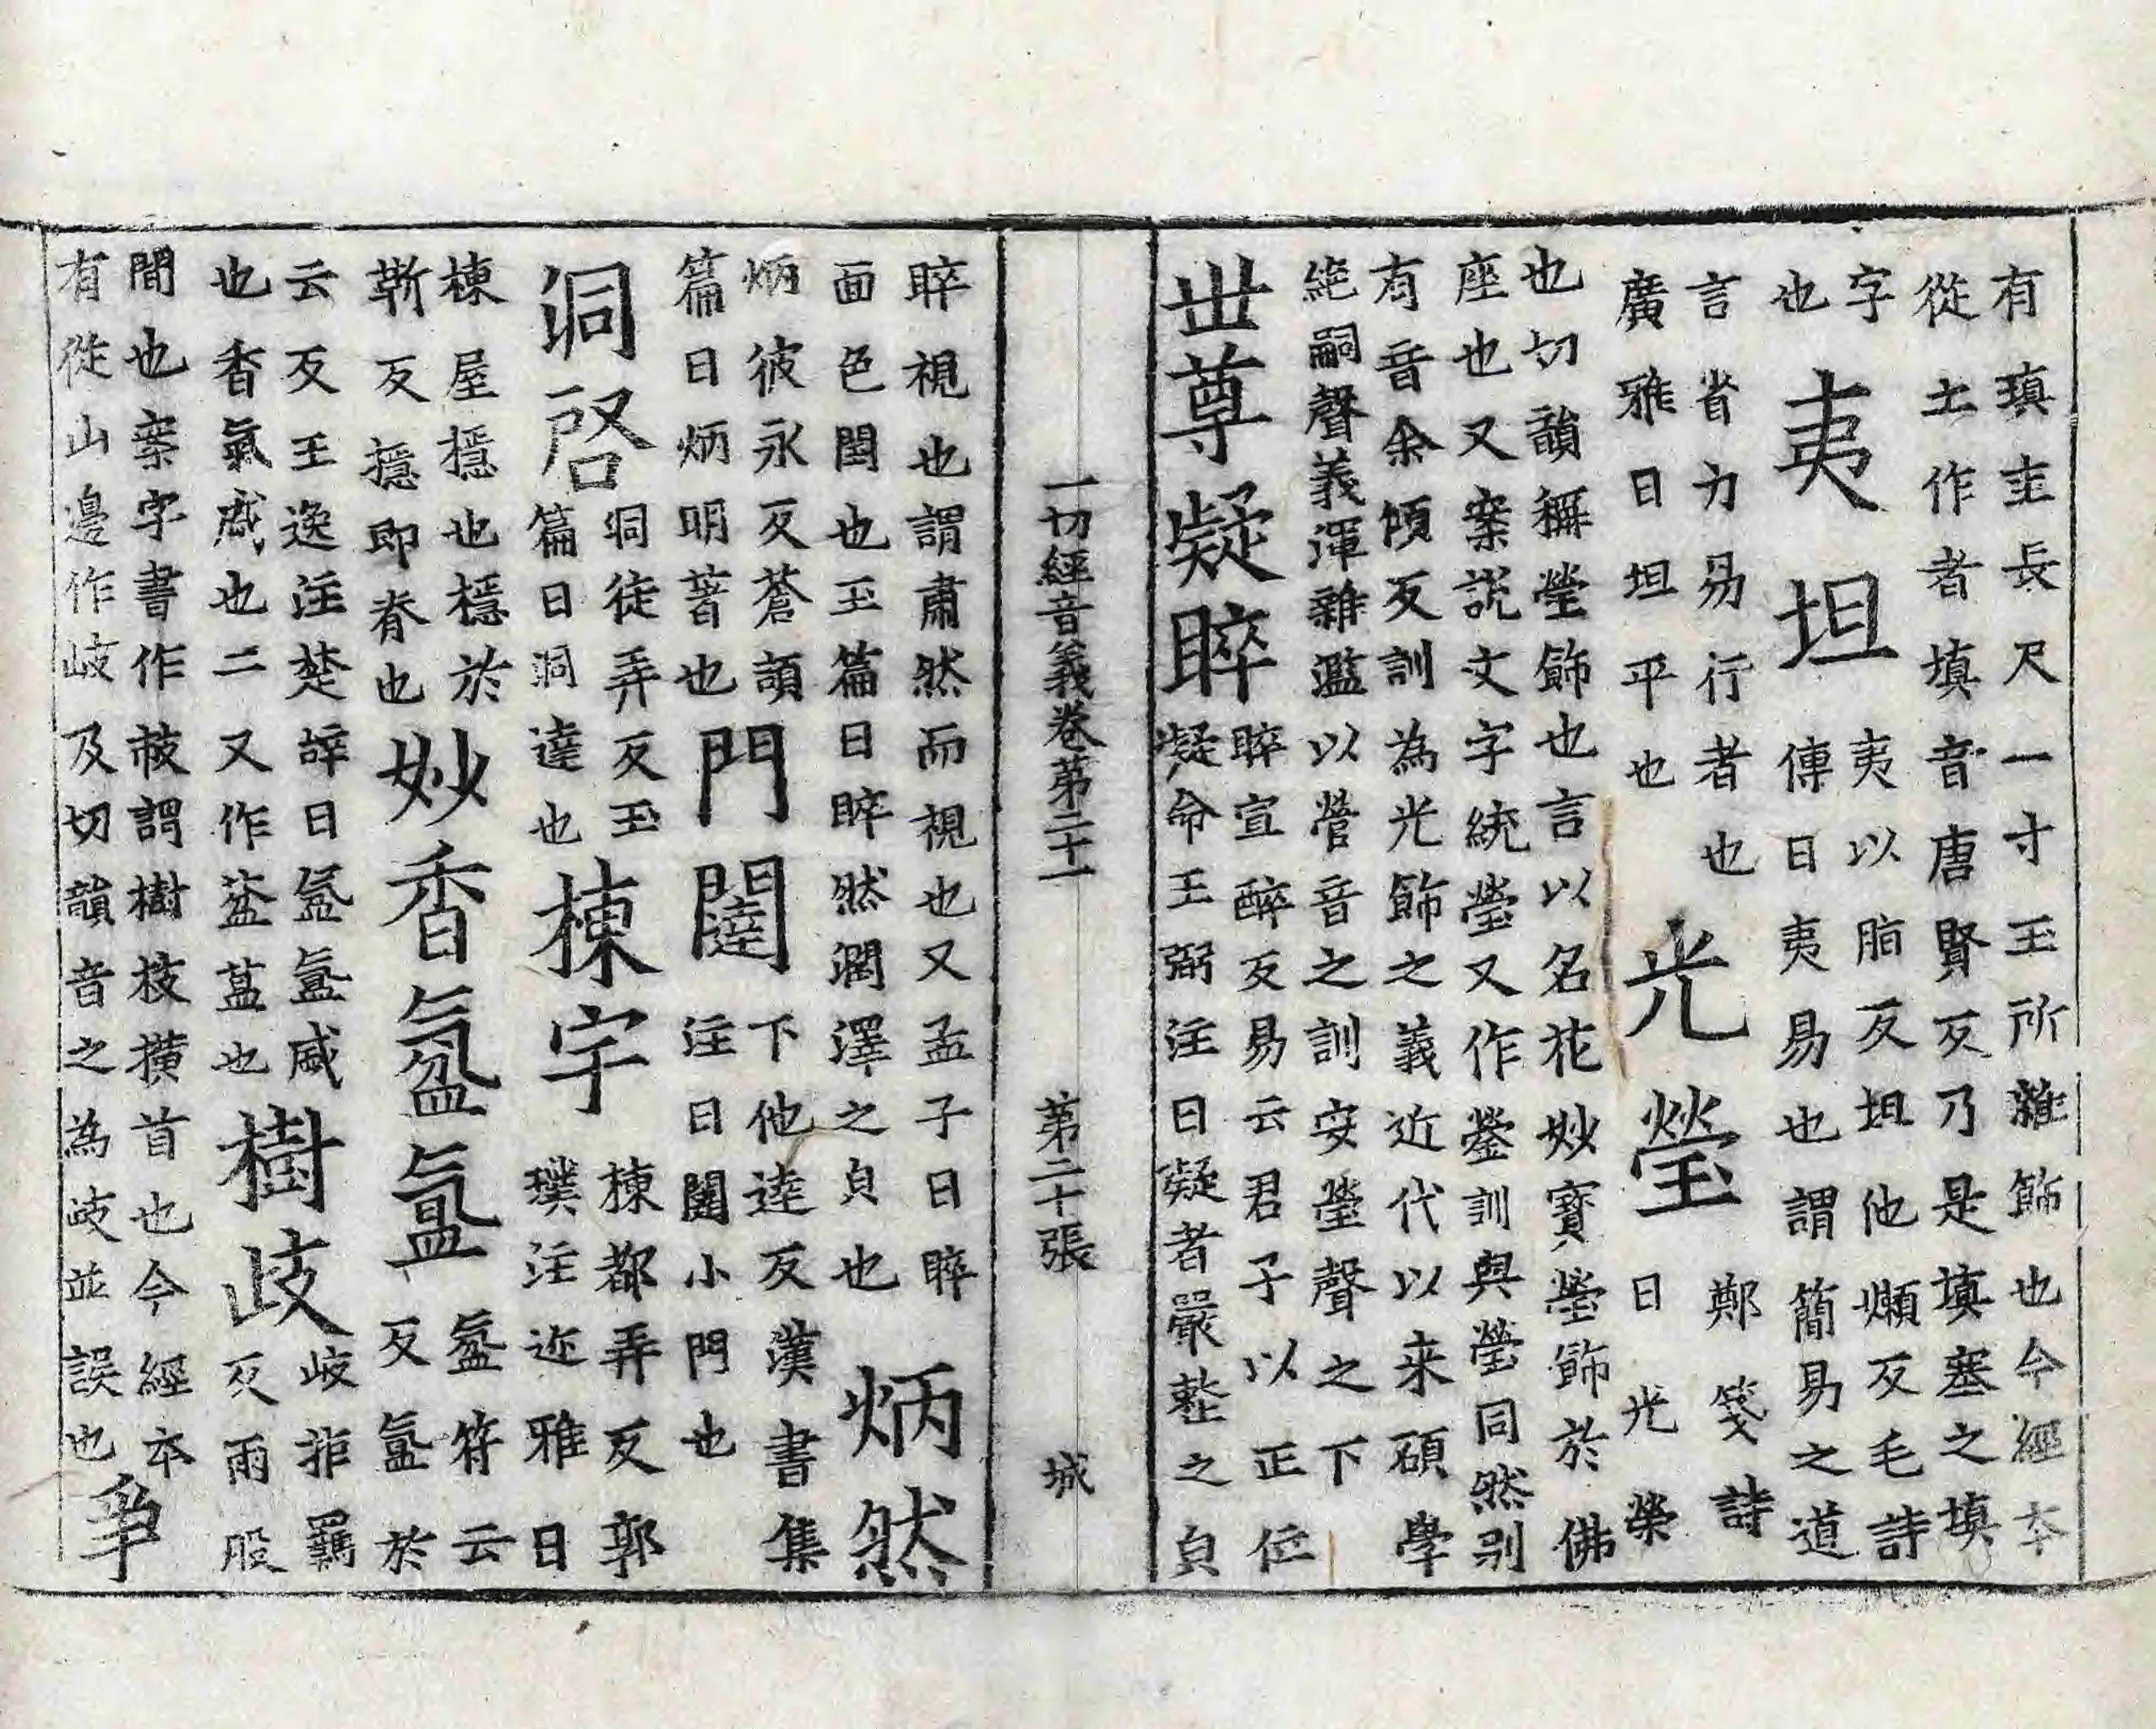 有瑱圭長尺一寸玉所雜飾也今經本
從土作者填音唐賢反乃是填塞之填
字
也
夷坦
夷以脂反坦他嬾反毛詩
傳曰夷易也謂簡易之道
言省力易行者也
廣雅曰坦平也
光瑩
鄭箋詩
曰光榮
也切韻稱瑩飾也言以名花妙寶瑩飾於佛
座也又案說文字統瑩又作鎣訓與瑩同然别
有音余傾反訓為光飾之義近代以来碩學
絕嗣聲義渾雜濫以營音之訓安瑩聲之下
世尊凝睟
睟宣醉反易云君子以正位
凝命王弼注曰凝者嚴整之皃
一切經音義卷苐二十一 苐二十張 城
睟視也謂肅然而視也又孟子曰睟
面色閏也玉篇曰睟然潤澤之皃也
炳然
炳彼永反蒼頡
篇曰炳明著也
門闥
下他達反漢書集
注曰闥小門也
洞啓
洞徒弄反玉
篇曰洞達也
棟宇
棟都弄反郭
璞注迩雅曰
棟屋檼也檼於
靳反檼即脊也
妙香氛氳
氛符云
反氳於
云反王逸注楚辝曰氛氳盛
也香氣盛也二又作葐蒀也
樹歧
歧拒羈
反兩股
間也案字書作㩻謂樹枝撗首也今經本
有從山邊作岐及切韻音之為歧並誤也
爭